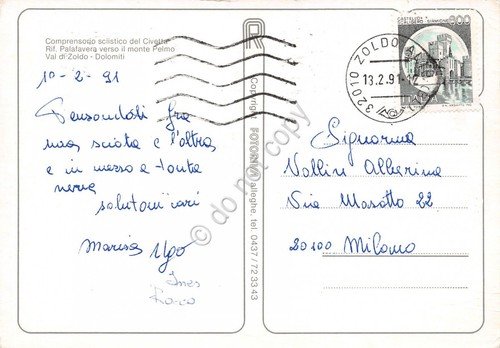 Comprensorio sciistico del Civetta
Rif. Palafavera verso il monte Pelmo
Val di Zoldo - Dolomiti
10-2-91
Pensandoti fra
una sciata e l'altra
e in mezzo a tanta
neve
salutoni cari
Marisa Ugo
Ines
Rocco
R
Copyright FOTORIVA Alleghe, tel. 0437/723343
do not copy
32010 ZOLDO A
13.2.91-12
CASTELLO SCALIGERO · SIRMIONE
800
Signorina
Vallin Alberina
Via Masotto 22
20100 Milano